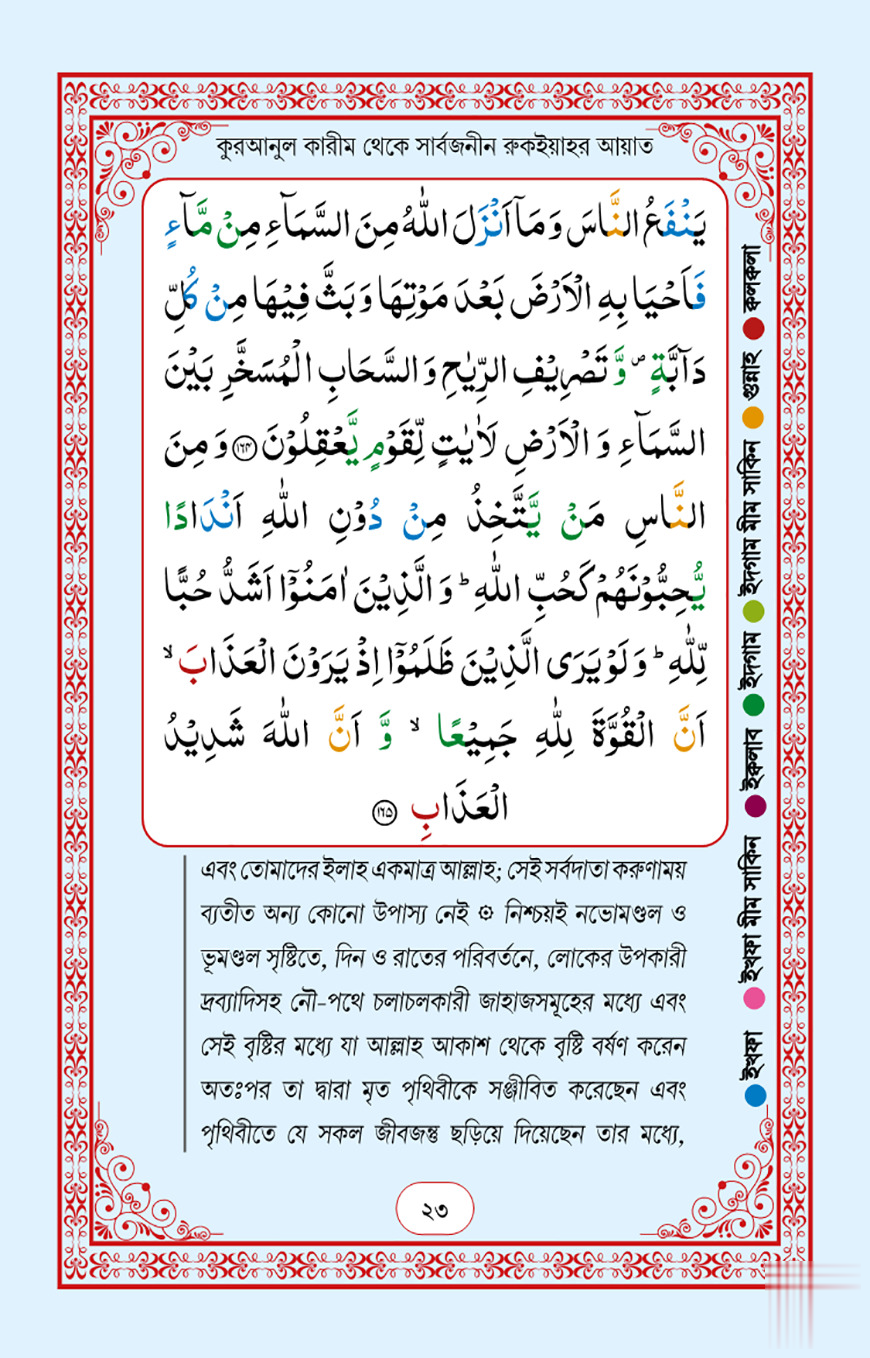 কুরআনুল কারীম থেকে সার্বজনীন রুকইয়াহর আয়াত
يَنْفَعُ النَّاسَ وَ مَاۤ اَنْزَلَ اللّٰهُ مِنَ السَّمَآءِ مِنْ مَّآءٍ
فَاَحْیَا بِهِ الْاَرْضَ بَعْدَ مَوْتِهَا وَ بَثَّ فِیْهَا مِنْ كُلِّ
دَآبَّةٍ ۪ وَّ تَصْرِیْفِ الرِّیٰحِ وَ السَّحَابِ الْمُسَخَّرِ بَیْنَ
السَّمَآءِ وَ الْاَرْضِ لَاٰیٰتٍ لِّقَوْمٍ یَّعْقِلُوْنَ ﴿۱۶۴﴾ وَ مِنَ
النَّاسِ مَنْ یَّتَّخِذُ مِنْ دُوْنِ اللّٰهِ اَنْدَادًا
یُّحِبُّوْنَهُمْ كَحُبِّ اللّٰهِ ؕ وَ الَّذِیْنَ اٰمَنُوْۤا اَشَدُّ حُبًّا
لِّلّٰهِ ؕ وَ لَوْ یَرَی الَّذِیْنَ ظَلَمُوْۤا اِذْ یَرَوْنَ الْعَذَابَ ۙ
اَنَّ الْقُوَّةَ لِلّٰهِ جَمِیْعًا ۙ وَّ اَنَّ اللّٰهَ شَدِیْدُ
الْعَذَابِ ﴿۱۶۵﴾
এবং তোমাদের ইলাহ একমাত্র আল্লাহ; সেই সর্বদাতা করুণাময়
ব্যতীত অন্য কোনো উপাস্য নেই ۞ নিশ্চয়ই নভোমণ্ডল ও
ভূমণ্ডল সৃষ্টিতে, দিন ও রাতের পরিবর্তনে, লোকের উপকারী
দ্রব্যাদিসহ নৌ-পথে চলাচলকারী জাহাজসমূহের মধ্যে এবং
সেই বৃষ্টির মধ্যে যা আল্লাহ আকাশ থেকে বৃষ্টি বর্ষণ করেন
অতঃপর তা দ্বারা মৃত পৃথিবীকে সঞ্জীবিত করেছেন এবং
পৃথিবীতে যে সকল জীবজন্তু ছড়িয়ে দিয়েছেন তার মধ্যে,
● ইখফা ● ইখফা মীম সাকিন ● ইক্বলাব ● ইদগাম ● ইদগাম মীম সাকিন ● গুন্নাহ ● কলকলা
২৩